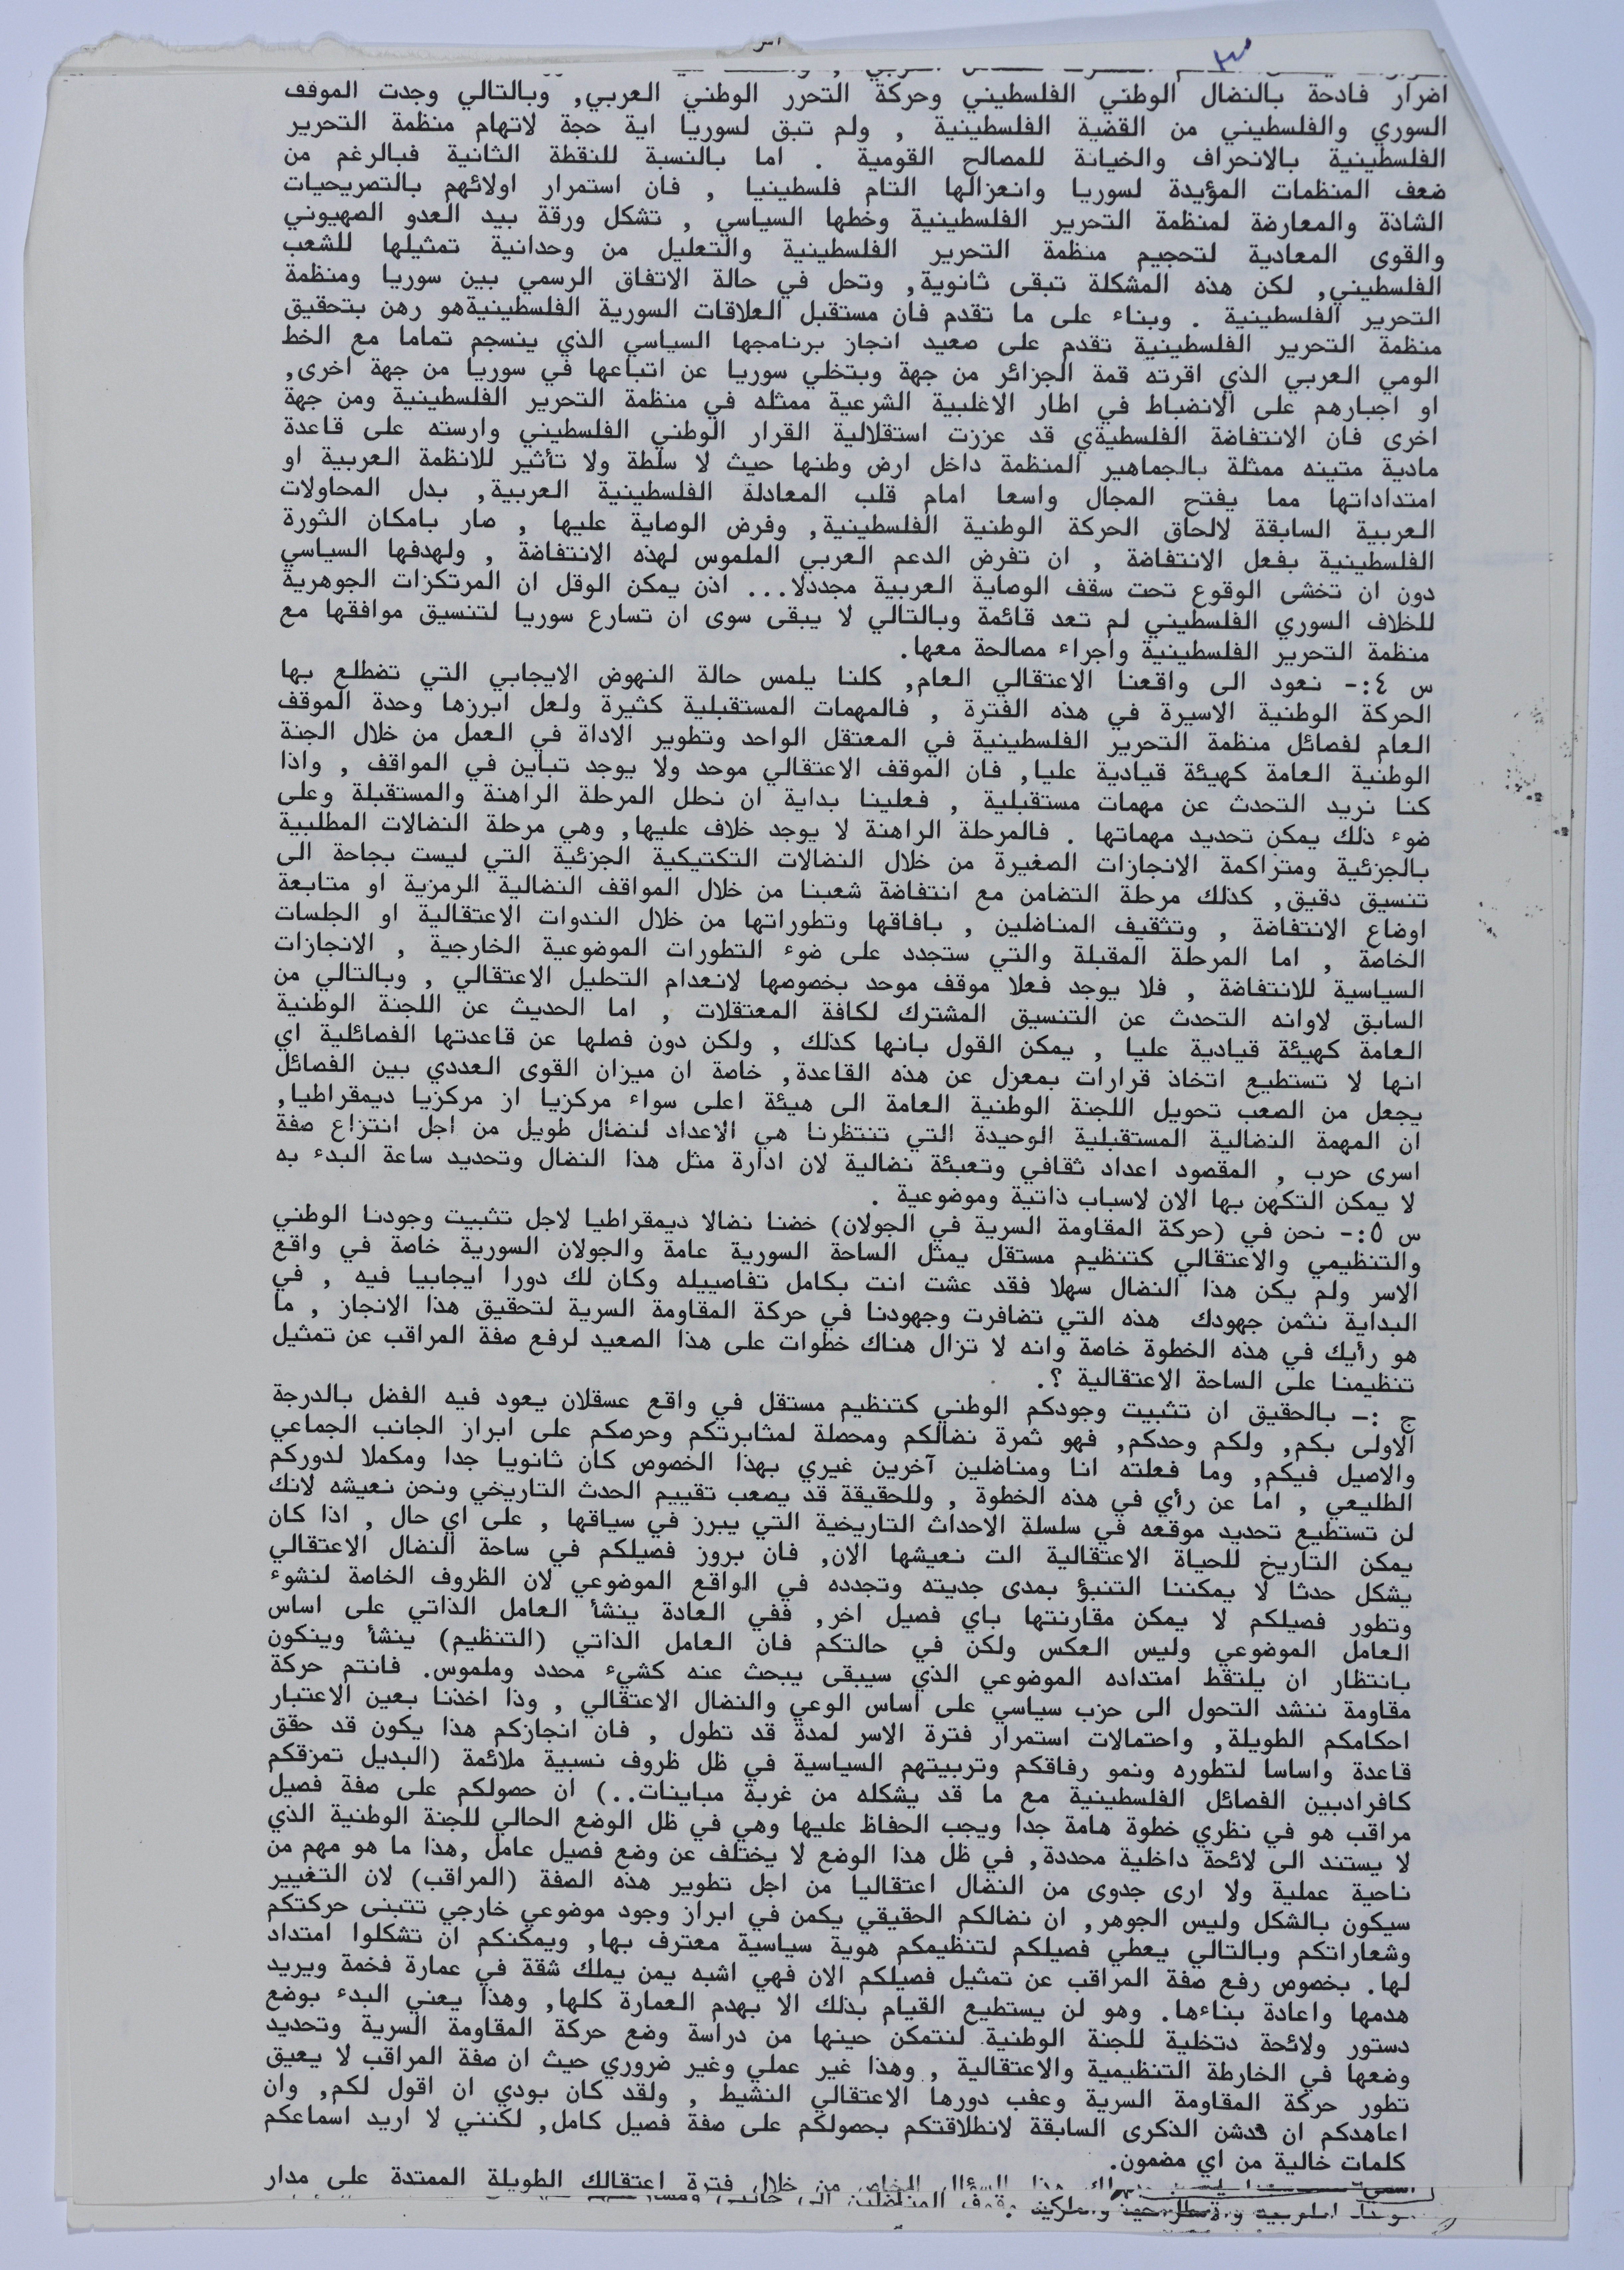 ٣
اضرار فادحة بالنضال الوطني الفلسطيني وحركة التحرر الوطني العربي, وبالتالي وجدت الموقف
السوري والفلسطيني من القضية الفلسطينية , ولم تبق لسوريا اية حجة لاتهام منظمة التحرير
الفلسطينية بالانحراف والخيانة للمصالح القومية . اما بالنسبة للنقطة الثانية فبالرغم من
ضعف المنظمات المؤيدة لسوريا وانعزالها التام فلسطينيا , فان استمرار اولائهم بالتصريحيات
الشاذة والمعارضة لمنظمة التحرير الفلسطينية وخطها السياسي , تشكل ورقة بيد العدو الصهيوني
والقوى المعادية لتحجيم منظمة التحرير الفلسطينية والتعليل من وحدانية تمثيلها للشعب
الفلسطيني, لكن هذه المشكلة تبقى ثانوية, وتحل في حالة الاتفاق الرسمي بين سوريا ومنظمة
التحرير الفلسطينية . وبناء على ما تقدم فان مستقبل العلاقات السورية الفلسطينيةهو رهن بتحقيق
منظمة التحرير الفلسطينية تقدم على صعيد انجاز برنامجها السياسي الذي ينسجم تماما مع الخط
الومي العربي الذي اقرته قمة الجزائر من جهة وبتخلي سوريا عن اتباعها في سوريا من جهة اخرى,
او اجبارهم على الانضباط في اطار الاغلبية الشرعية ممثله في منظمة التحرير الفلسطينية ومن جهة
اخرى فان الانتفاضة الفلسطيةي قد عززت استقلالية القرار الوطني الفلسطيني وارسته على قاعدة
مادية متينه ممثلة بالجماهير المنظمة داخل ارض وطنها حيث لا سلطة ولا تأثير للانظمة العربية او
امتداداتها مما يفتح المجال واسعا امام قلب المعادلة الفلسطينية العربية, بدل المحاولات
العربية السابقة لالحاق الحركة الوطنية الفلسطينية, وفرض الوصاية عليها , صار بامكان الثورة
الفلسطينية بفعل الانتفاضة , ان تفرض الدعم العربي الملموس لهذه الانتفاضة , ولهدفها السياسي
دون ان تخشى الوقوع تحت سقف الوصاية العربية مجددلا... اذن يمكن الوقل ان المرتكزات الجوهرية
للخلاف السوري الفلسطيني لم تعد قائمة وبالتالي لا يبقى سوى ان تسارع سوريا لتنسيق موافقها مع
منظمة التحرير الفلسطينية واجراء مصالحة معها.
س ٤:- نعود الى واقعنا الاعتقالي العام, كلنا يلمس حالة النهوض الايجابي التي تضطلع بها
الحركة الوطنية الاسيرة في هذه الفترة , فالمهمات المستقبلية كثيرة ولعل ابرزها وحدة الموقف
العام لفصائل منظمة التحرير الفلسطينية في المعتقل الواحد وتطوير الاداة في العمل من خلال الجنة
الوطنية العامة كهيئة قيادية عليا, فان الموقف الاعتقالي موحد ولا يوجد تباين في المواقف , واذا
كنا نريد التحدث عن مهمات مستقبلية , فعلينا بداية ان نحلل المرحلة الراهنة والمستقبلة وعلى
ضوء ذلك يمكن تحديد مهماتها . فالمرحلة الراهنة لا يوجد خلاف عليها, وهي مرحلة النضالات المطلبية
بالجزئية ومتراكمة الانجازات الصغيرة من خلال النضالات التكتيكية الجزئية التي ليست بجاحة الى
تنسيق دقيق, كذلك مرحلة التضامن مع انتفاضة شعبنا من خلال المواقف النضالية الرمزية او متابعة
اوضاع الانتفاضة , وتثقيف المناضلين , بافاقها وتطوراتها من خلال الندوات الاعتقالية او الجلسات
الخاصة , اما المرحلة المقبلة والتي ستجدد على ضوء التطورات الموضوعية الخارجية , الانجازات
السياسية للانتفاضة , فلا يوجد فعلا موقف موحد بخصوصها لانعدام التحليل الاعتقالي , وبالتالي من
السابق لاوانه التحدث عن التنسيق المشترك لكافة المعتقلات , اما الحديث عن اللجنة الوطنية
العامة كهيئة قيادية عليا , يمكن القول بانها كذلك , ولكن دون فصلها عن قاعدتها الفصائلية اي
انها لا تستطيع اتخاذ قرارات بمعزل عن هذه القاعدة, خاصة ان ميزان القوى العددي بين الفصائل
يجعل من الصعب تحويل اللجنة الوطنية العامة الى هيئة اعلى سواء مركزيا از مركزيا ديمقراطيا,
ان المهمة النضالية المستقبلية الوحيدة التي تنتظرنا هي الاعداد لنضال طويل من اجل انتزاع صفة
اسرى حرب , المقصود اعداد ثقافي وتعبئة نضالية لان ادارة مثل هذا النضال وتحديد ساعة البدء به
لا يمكن التكهن بها الان لاسباب ذاتية وموضوعية .
س ٥:- نحن في (حركة المقاومة السرية في الجولان) خضنا نضالا ديمقراطيا لاجل تثبيت وجودنا الوطني
والتنظيمي والاعتقالي كتنظيم مستقل يمثل الساحة السورية عامة والجولان السورية خاصة في واقع
الاسر ولم يكن هذا النضال سهلا فقد عشت انت بكامل تفاصييله وكان لك دورا ايجابيا فيه , في
البداية نثمن جهودك هذه التي تضافرت وجهودنا في حركة المقاومة السرية لتحقيق هذا الانجاز , ما
هو رأيك في هذه الخطوة خاصة وانه لا تزال هناك خطوات على هذا الصعيد لرفع صفة المراقب عن تمثيل
تنظيمنا على الساحة الاعتقالية ؟.
ج :- بالحقيق ان تثبيت وجودكم الوطني كتنظيم مستقل في واقع عسقلان يعود فيه الفضل بالدرجة
الاولى بكم, ولكم وحدكم, فهو ثمرة نضالكم ومحصلة لمثابرتكم وحرصكم على ابراز الجانب الجماعي
والاصيل فيكم, وما فعلته انا ومناضلين آخرين غيري بهذا الخصوص كان ثانويا جدا ومكملا لدوركم
الطليعي , اما عن رأي في هذه الخطوة , وللحقيقة قد يصعب تقييم الحدث التاريخي ونحن نعيشه لانك
لن تستطيع تحديد موقعه في سلسلة الاحداث التاريخية التي يبرز في سياقها , على اي حال , اذا كان
يمكن التاريخ للحياة الاعتقالية الت نعيشها الان, فان بروز فصيلكم في ساحة النضال الاعتقالي
يشكل حدثا لا يمكننا التنبؤ بمدى جديته وتجدده في الواقع الموضوعي لان الظروف الخاصة لنشوء
وتطور فصيلكم لا يمكن مقارنتها باي فصيل اخر, ففي العادة ينشأ العامل الذاتي على اساس
العامل الموضوعي وليس العكس ولكن في حالتكم فان العامل الذاتي (التنظيم) ينشأ ويتكون
بانتظار ان يلتقط امتداده الموضوعي الذي سيبقى يبحث عنه كشيء محدد وملموس. فانتم حركة
مقاومة ننشد التحول الى حزب سياسي على اساس الوعي والنضال الاعتقالي , وذا اخذنا بعين الاعتبار
احكامكم الطويلة, واحتمالات استمرار فترة الاسر لمدة قد تطول , فان انجازكم هذا يكون قد حقق
قاعدة واساسا لتطوره ونمو رفاقكم وتربيتهم السياسية في ظل ظروف نسبية ملائمة (البديل تمزقكم
كافرادبين الفصائل الفلسطينية مع ما قد يشكله من غربة مباينات..) ان حصولكم على صفة فصيل
مراقب هو في نظري خطوة هامة جدا ويجب الحفاظ عليها وهي في ظل الوضع الحالي للجنة الوطنية الذي
لا يستند الى لائحة داخلية محددة, في ظل هذا الوضع لا يختلف عن وضع فصيل عامل ,هذا ما هو مهم من
ناحية عملية ولا ارى جدوى من النضال اعتقاليا من اجل تطوير هذه الصفة (المراقب) لان التغيير
سيكون بالشكل وليس الجوهر, ان نضالكم الحقيقي يكمن في ابراز وجود موضوعي خارجي تتبنى حركتكم
وشعاراتكم وبالتالي يعطي فصيلكم لتنظيمكم هوية سياسية معترف بها, ويمكنكم ان تشكلوا امتداد
لها. بخصوص رفع صفة المراقب عن تمثيل فصيلكم الان فهي اشبه يمن يملك شقة في عمارة فخمة ويريد
هدمها واعادة بناءها. وهو لن يستطيع القيام بذلك الا بهدم العمارة كلها, وهذا يعني البدء بوضع
دستور ولائحة دتخلية للجنة الوطنية لنتمكن حينها من دراسة وضع حركة المقاومة السرية وتحديد
وضعها في الخارطة التنظيمية والاعتقالية , وهذا غير عملي وغير ضروري حيث ان صفة المراقب لا يعيق
تطور حركة المقاومة السرية وعفب دورها الاعتقالي النشيط , ولقد كان بودي ان اقول لكم, وان
اعاهدكم ان ندشن الذكرى السابقة لانطلاقتكم بحصولكم على صفة فصيل كامل, لكنني لا اريد اسماعكم
كلمات خالية من اي مضمون.
هذا السؤال الخاص من خلال فترة اعتقالك الطويلة الممتدة على مدار
وقوف المناضلين الى جانبي